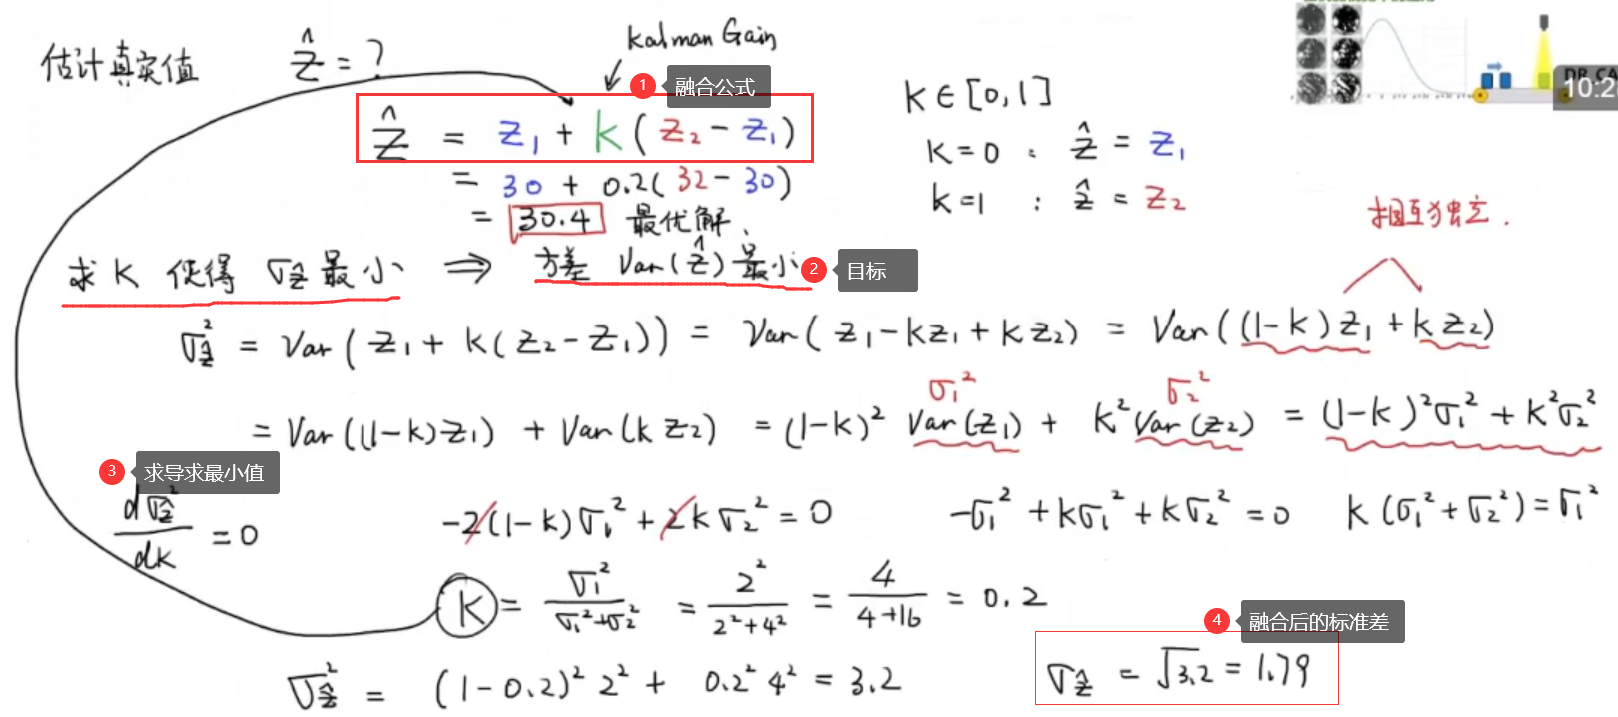 估计真实值 ẑ = ?
Kalman Gain
1 融合公式
ẑ = z₁ + k ( z₂ − z₁ )
= 30 + 0.2( 32 − 30 )
= 30.4 最优解
k ∈ [0, 1]
k = 0 : ẑ = z₁
k = 1 : ẑ = z₂
DR_CA
10:2
相互独立.
求 k 使得 σẑ 最小 ⇒ 方差 Var(ẑ) 最小
2 目标
σẑ² = Var( z₁ + k( z₂ − z₁ )) = Var( z₁ − kz₁ + kz₂ ) = Var( (1−k)z₁ + kz₂ )
σ₁² σ₂²
= Var((1−k)z₁) + Var(kz₂) = (1−k)² Var(z₁) + k² Var(z₂) = (1−k)²σ₁² + k²σ₂²
3 求导求最小值
dσẑ²/dk = 0 −2(1−k)σ₁² + 2kσ₂² = 0 −σ₁² + kσ₁² + kσ₂² = 0 k(σ₁² + σ₂²) = σ₁²
k = σ₁²/(σ₁²+σ₂²) = 2²/(2²+4²) = 4/(4+16) = 0.2
4 融合后的标准差
σẑ² = (1−0.2)² 2² + 0.2² 4² = 3.2 σẑ = √3.2 = 1.79